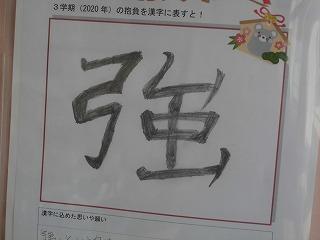 3学期（2020年）の抱負を漢字に表すと！
強
漢字に込めた思いや願い